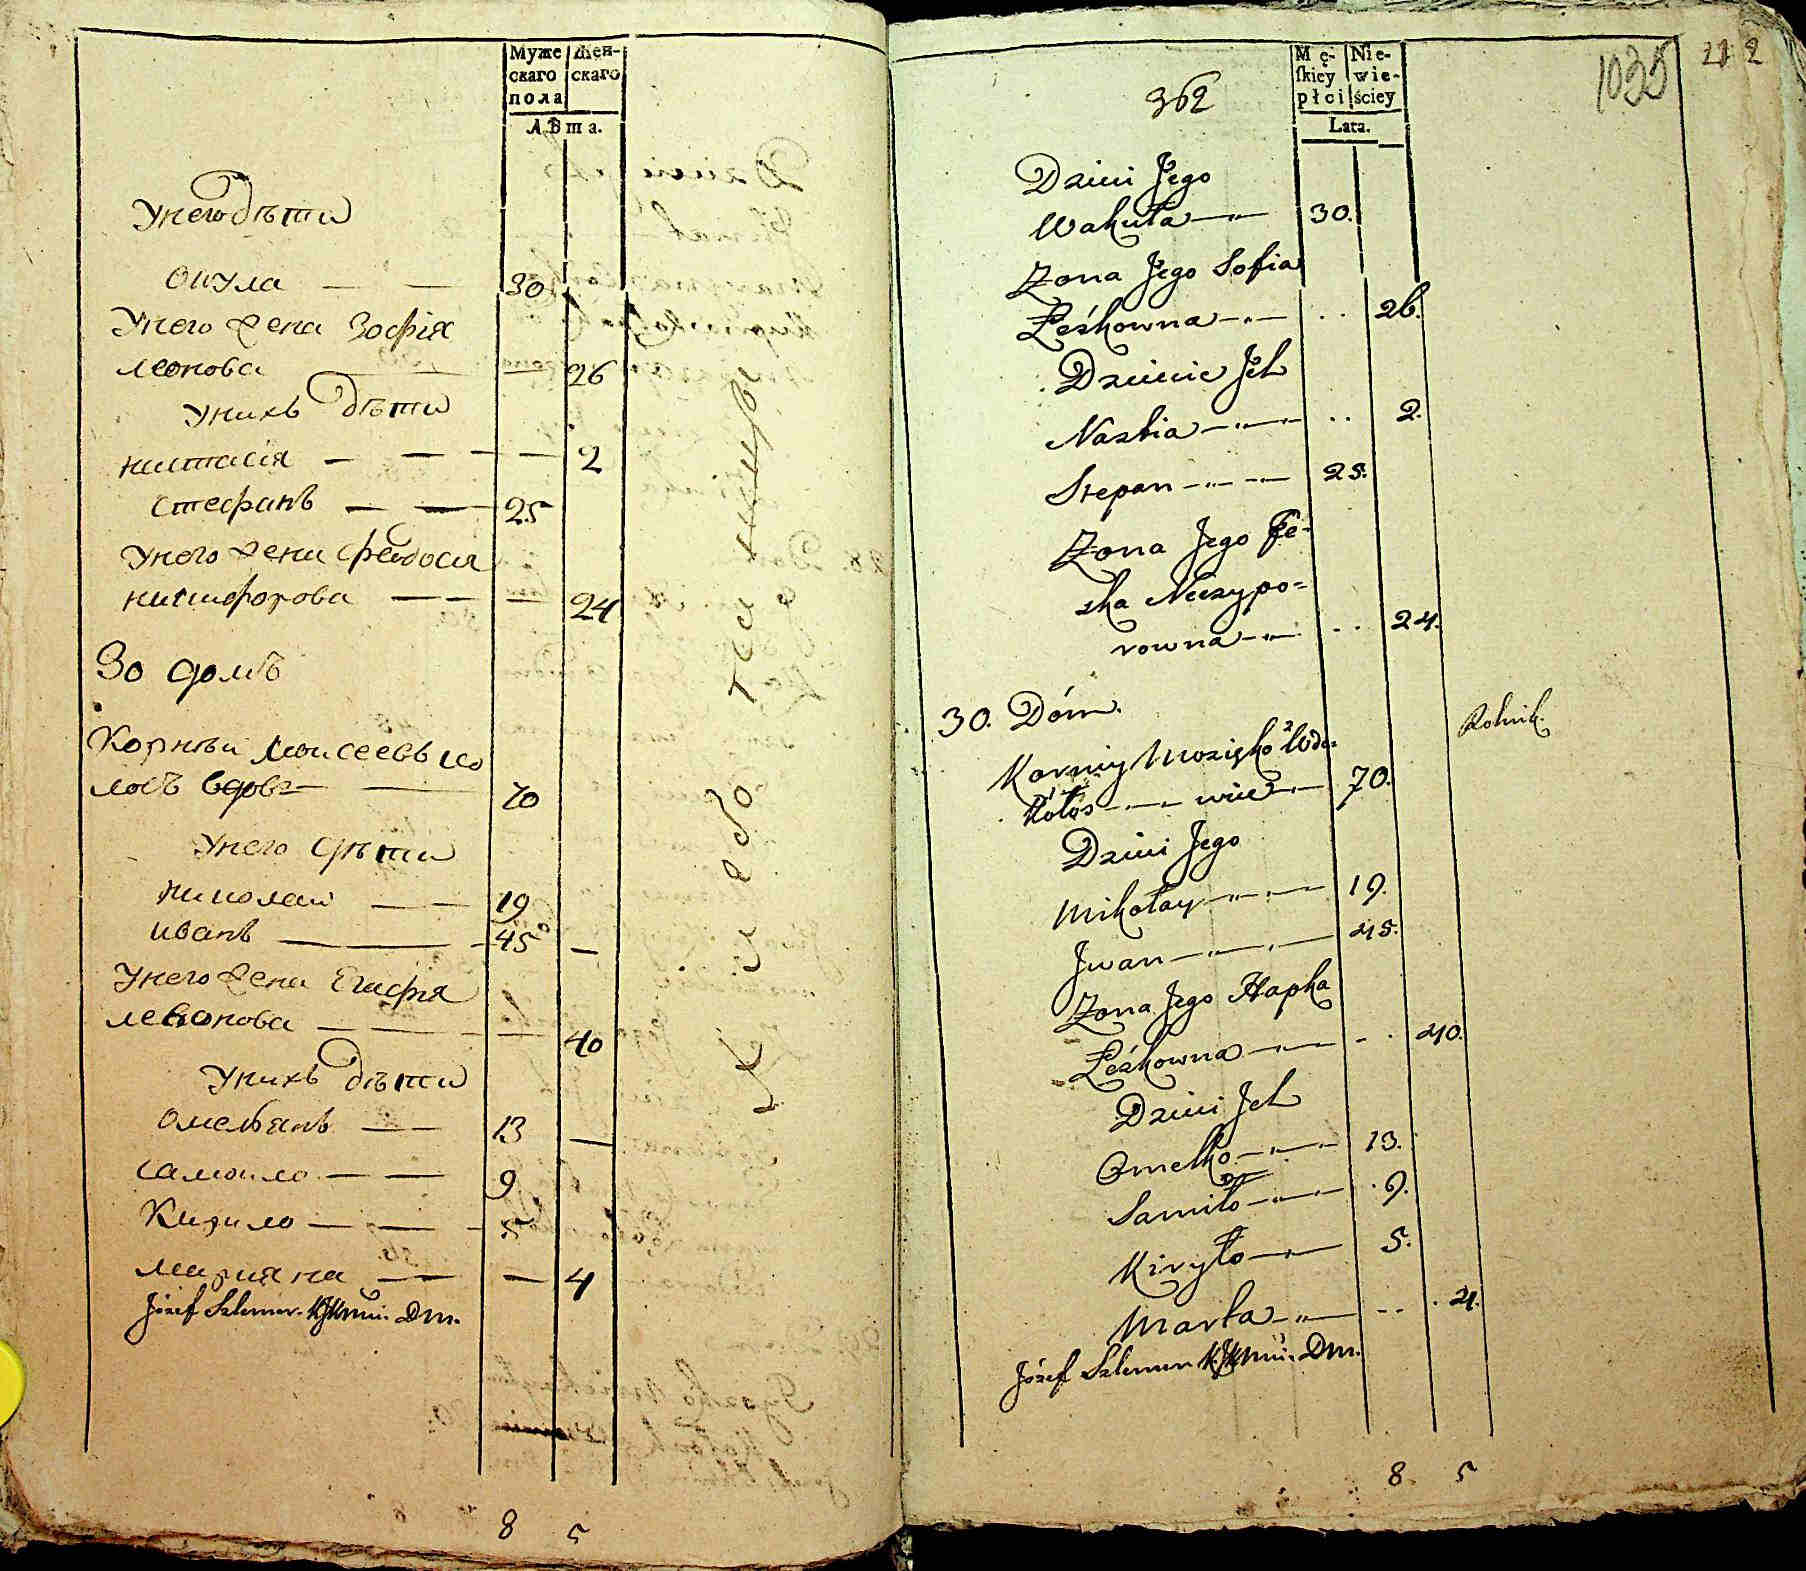 Муже
скаго
пола
Жен-
скаго
Лѣта.
У него дѣти
30
У него жена Зофія
леонова 26
У нихъ дѣти
настасія 2
Стефанъ 25
У него жена феодосія
никифорова 24
30 домъ
Корнѣй Моисеевъ ко
лосъ вдовъ 70
У него дѣти
николай 19
иванъ 45
У него жена Егафія
левонова 40
У нихъ дѣти
омелянъ 13
самойло 9
Кирило 5
марияна 4
Józef
8 5
362
Mę-
skiey
płci
Nie-
wie-
ściey
Lata.
1035
212
Dzieci Jego
Wakuła 30.
Zona Jego Sofia
Leśkowna 26.
Dziecie Ich
Nastia 2.
Stepan 25.
Zona Jego Fe-
ska Niczypo-
rowna 24.
30. Dóm.
Rolnik.
Korniy Mozieyko Wdo-
Kołos wiec 70.
Dzieci Jego
Mikołay 19.
Jwan 45.
Zona Jego Hapka
Leśkowna 40.
Dzieci Ich
Omelko 13.
Samiło 9.
Kiryło 5.
Marta 4.
Józef
8 5